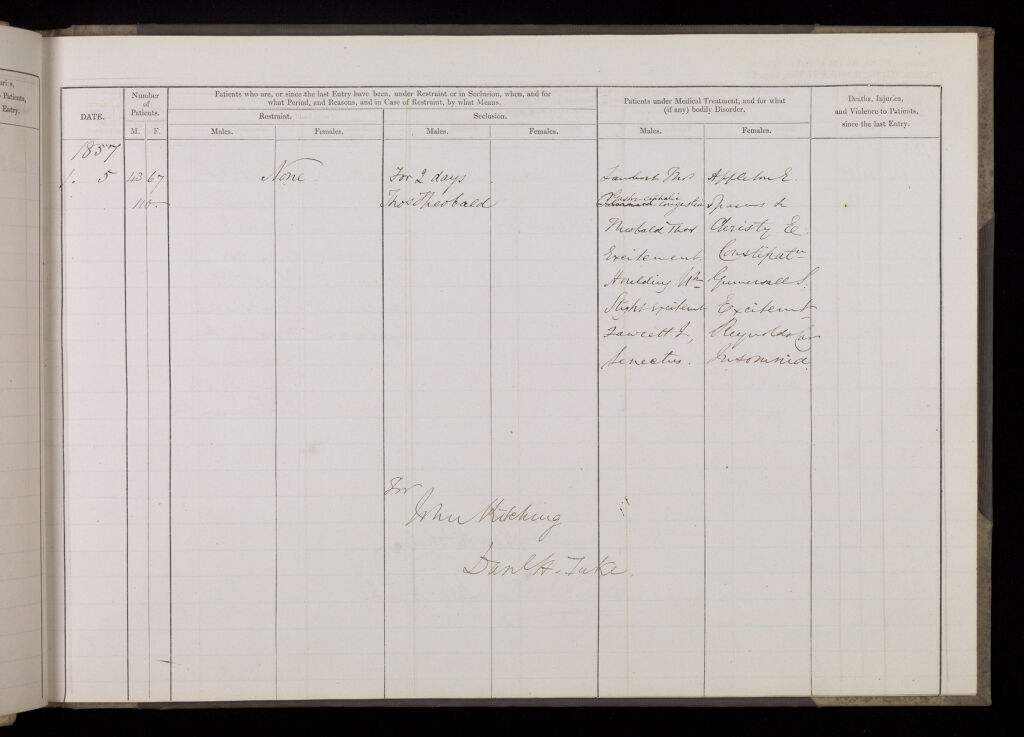 uries,
o Patients,
Entry.
DATE.
Number
of
Patients.
M. F.
Patients who are, or since the last Entry have been, under Restraint or in Seclusion, when, and for
what Period, and Reasons, and in Case of Restraint, by what Means.
Restraint.
Seclusion.
Males. Females. Males. Females.
Patients under Medical Treatment, and for what
(if any) bodily Disorder.
Males. Females.
Deaths, Injuries,
and Violence to Patients,
since the last Entry.
1857
1. 5 43 67 None For 2 days Thos Appleton E.
110 Thos Theobald congestion Spasms &c
Theobald Thos Christy E
Excitement. Constipatn
Houlding Wm S.
Slight excitemt Excitemt
Fawcett J, Reynolds
Senectus. Insomnia
For
John Kitching
Danl H. Tuke.